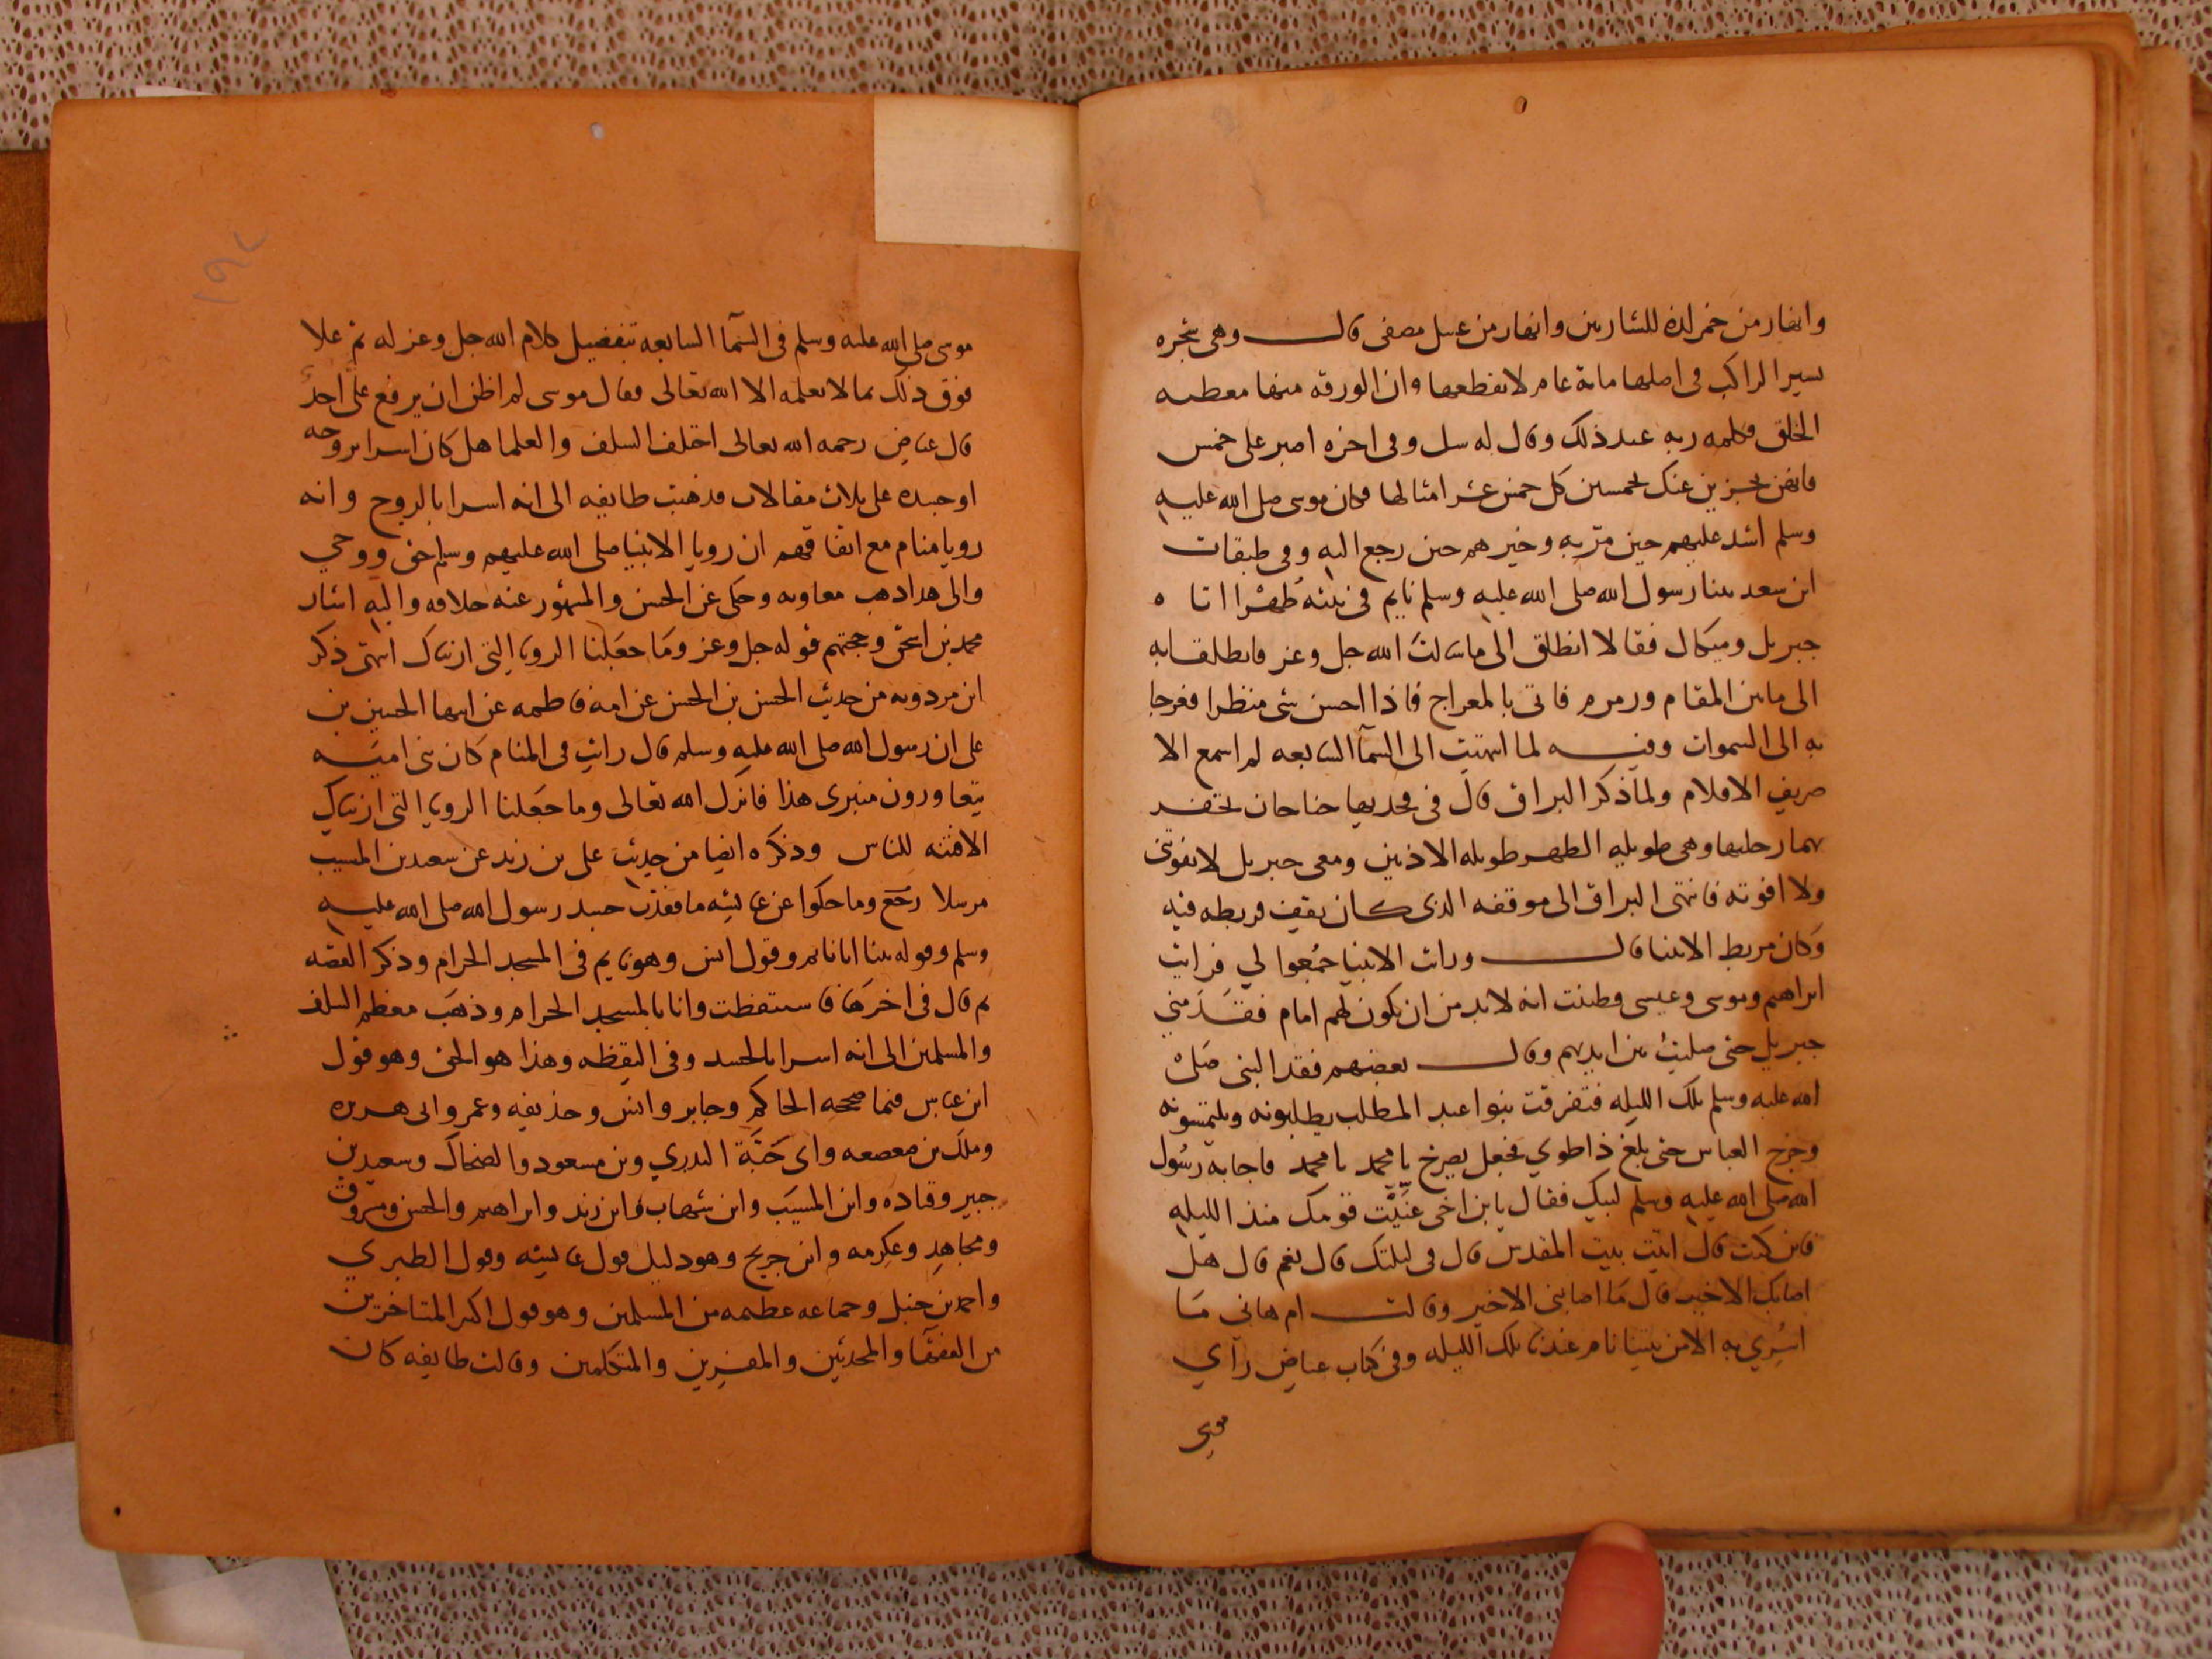 وانهار من خمر لذه للشاربين وانهار من عسل مصفى قال وهى شجره
يسير الراكب فى اصلها ماية عام لا يقطعها وان الورقه منها مغطيه
الخلق فكلمه ربه عند ذلك وقال له سل وفى اخره اصبر على خمس
فانهن يجزين عنك بخمسين كل خمس عشر امثالها فكان موسى صلى الله عليه
وسلم اشد عليهم حين مرّ به وخيرهم حين رجع اليه وفى طبقات
ابن سعد بينا رسول الله صلى الله عليه وسلم نايم فى بيته ظُهْرًا اتاه
جبريل وميكال فقالا انطلق الى ما سالتَ الله جل وعز فانطلقا به
الى ما بين المقام وزمزم فاتى بالمعراج فاذا احسن شى منظرا فعرجا
به الى السموات وفيه لما انتهيت الى السمآ السابعه لم اسمع الا
صريف الاقلام ولما ذكر البراق قال فى فخديها جناحان تحفز
بهما رجليها وهى طويله الظهر طويله الاذنين ومعى جبريل لا يفوتنى
ولا افوته فانتهى البراق الى موقفه الذى كان يقف فربطه فيه
وكان مربط الانبيا قال ورايت الانبيا جُمِعُوا لي فرايت
ابراهيم وموسى وعيسى وظننت انه لا بد من ان يكون لهم امام فقَدَّمنى
جبريل حتى صليت بين ايديهم وقال بعضهم فقد النبى صَلى
الله عليه وسلم تلك الليله فتفرقت بنوا عبد المطلب يطلبونه ويلتمسونه
وخرج العباس حتى بلغ ذا طوي فجعل يصرخ يا محمد يا محمد فاجابه رسُول
الله صلى الله عليه وسلم لبيك فقال يابن اخى عَنَّيْتَ قومك منذ الليله
فاين كنت قال اتيت بيت المقدس قال فى ليلتك قال نعم قال هل
اصابك الا خير قال مَا اصابنى الا خير وقالت ام هانى مَا
اسُرِي به الا من بيتنا نام عندنا تلك الليله وفى كتاب عياض رآي
موسى
موسى صلى الله عليه وسلم فى السمآ السابعه بتفضيل كلام الله جل وعز له ثم علا
فوق ذلك بما لا يعلمه الا الله تعالى فقال موسى لم اظن ان يرفع علىّ احدٌ
قال عياض رحمه الله تعالى اختلف السلف والعلما هل كان اسرا بروحه
او جسده على ثلاث مقالات فذهبت طايفه الى انه اسرا بالروح وانه
رويا منام مع اتفاقهم ان رويا الانبيا صلى الله عليهم وسلم حق ووحي
والى هذا ذهب معاويه وحكى عن الحسن والمشهُور عنه خلافه واليه اشار
محمد بن اسحق وحجتهم قوله جل وعز ومَا جعَلنا الرويا التى اريناك انتهى ذكر
ابن مردويه من حديث الحسن بن الحسن عن امه فاطمه عن ابيها الحسين بن
على ان رسول الله صلى الله عليه وسلم قال رايت فى المنام كان بنى اميَّه
يتعاورون منبرى هذا فانزل الله تعالى وما جعَلنا الرويا التى اريناك
الا فتنه للناس وذكره ايضا من حديث على بن زيد عن سعيد بن المسيب
مرسلا رَجَع وما حكوا عن عايشه ما فقدت جسد رسول الله صلى الله عليه
وسلم وقوله بينا انا نايم وقول انس وهو نايم فى المسجد الحرام وذكر القصّه
ثم قال فى اخرهَا فاستيقظت وانا بالمسجد الحرام وذهَب معظم السلف
والمسلمين الى انه اسرا بالجسد وفى اليقظه وهذا هو الحق وهو قول
ابن عباس فيما صححه الحاكم وجابر وانس وحذيفه وعمر وابى هريره
وملك بن صعصعه وابى حَبَّة البدرى وبن مسعود والضحاك وسعيد بن
جبير وقتاده وابن المسيَب وابن شهاب وابن زيد وابراهيم والحسن ومسروق
ومجاهد وعكرمه وابن جريج وهو دليل قول عايشه وقول الطبري
واحمد بن حنبل وجماعه عظيمه من المسلمين وهو قول اكثر المتاخرين
من الفقهَآ والمحدثين والمفسرين والمتكلمين وقالت طايفه كان